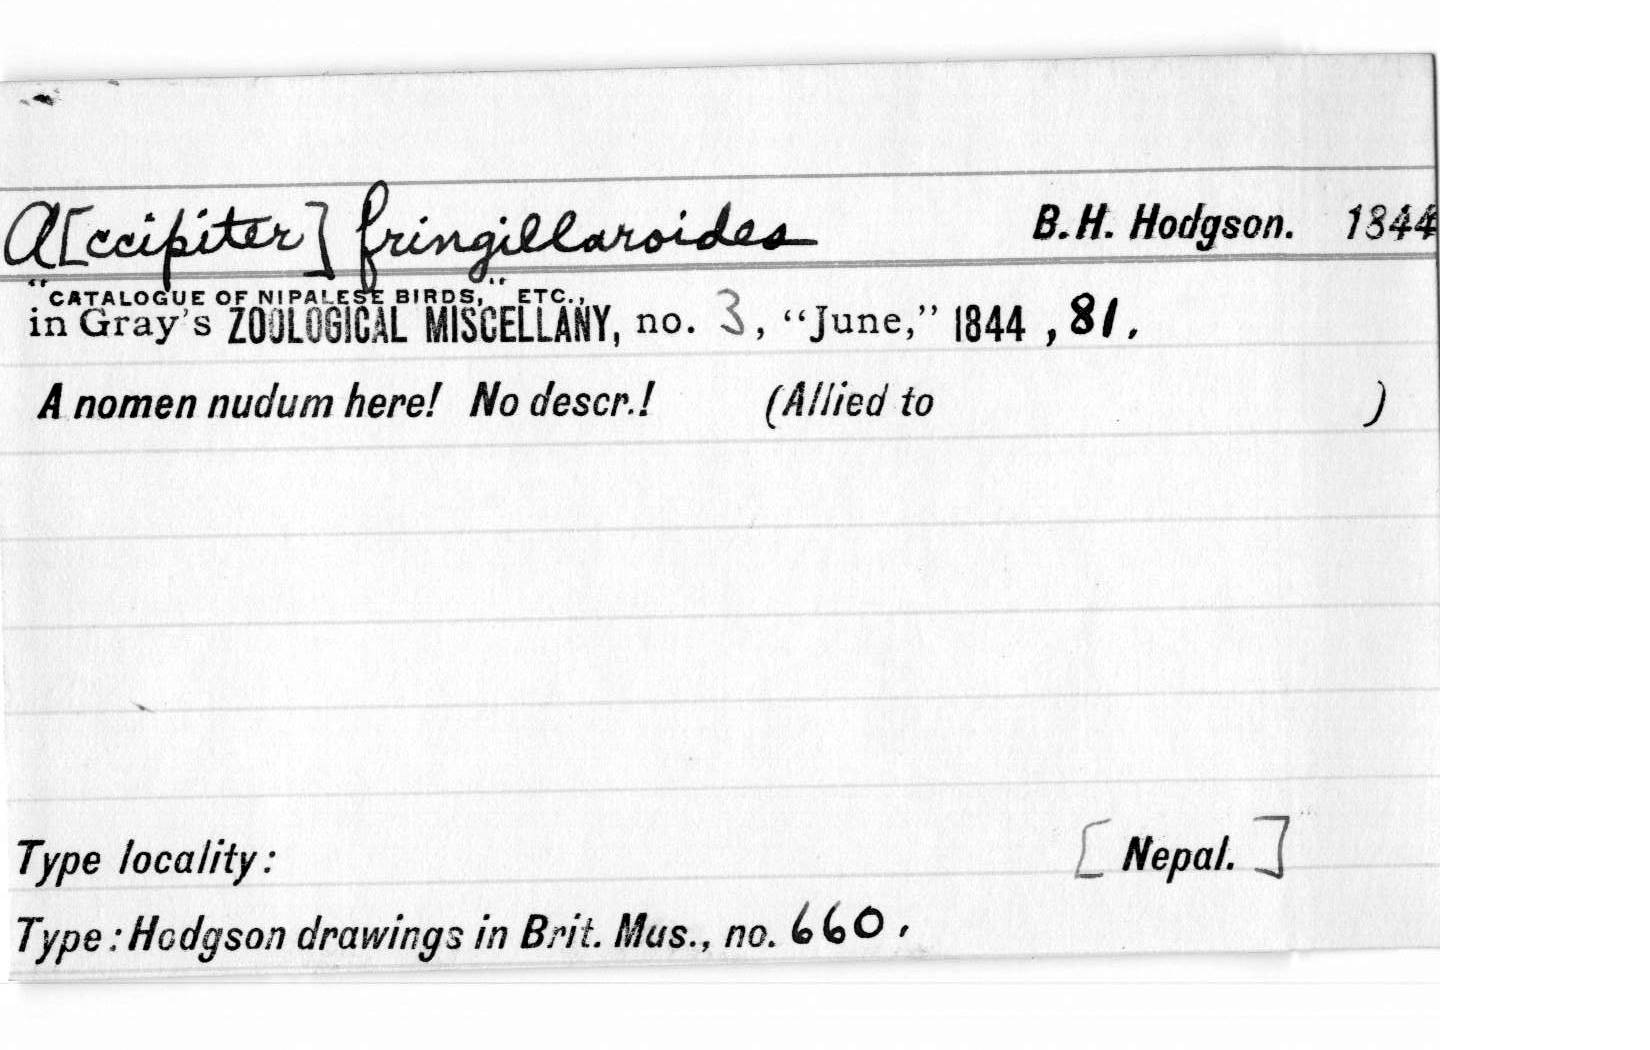 A[ccipiter] fringillaroides B.H. Hodgson. 1844
"CATALOGUE OF NIPALESE BIRDS," ETC.,
in Gray's ZOOLOGICAL MISCELLANY, no. 3, "June," 1844 , 81.
A nomen nudum here! No descr.! (Allied to )
Type locality: [Nepal.]
Type: Hodgson drawings in Brit. Mus., no. 660.